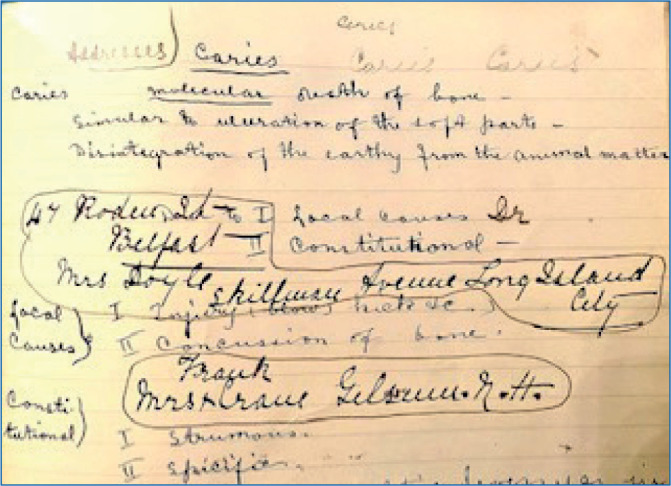 Caries
Addresses) Caries Caries Caries
Caries molecular death of bone -
Similar to ulceration of the soft parts -
Disintegration of the earthy from the animal matter
47 Roden St to I Local causes Dr
Belfast - II Constitutional -
Mrs Doyle Skillman Avenue Long Island
City
Local I Injury (blow, kick &c.)
Causes} II Concussion of bone.
Frank
Mrs Crane N.H.
Consti
tutional} I Strumous.
II Specific.